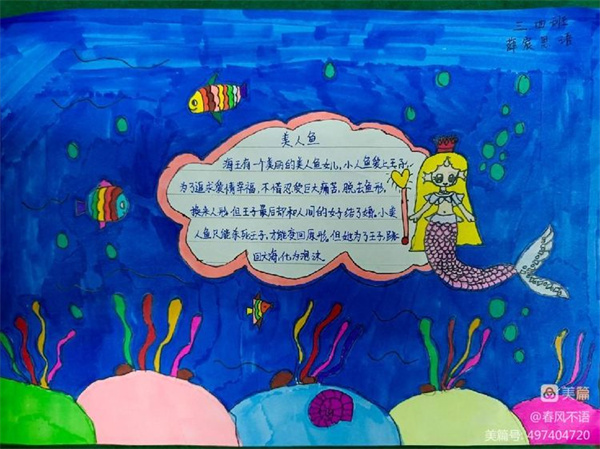 三四班
美人鱼
海王有一个美丽的美人鱼女儿,小人鱼爱上王子,
为了追求爱情幸福,不惜忍受巨大痛苦,脱去鱼形,
换来人形,但王子最后却和人间的女子结了婚。小美
人鱼只能杀死王子,才能变回原形,但她为了王子,跳
回大海,化为泡沫。
美篇
@春风不语
美篇号: 497404720